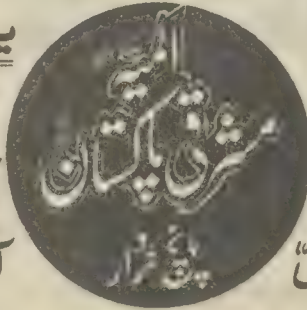 المیہ
مشرقی پاکستان
پانچ
کردار